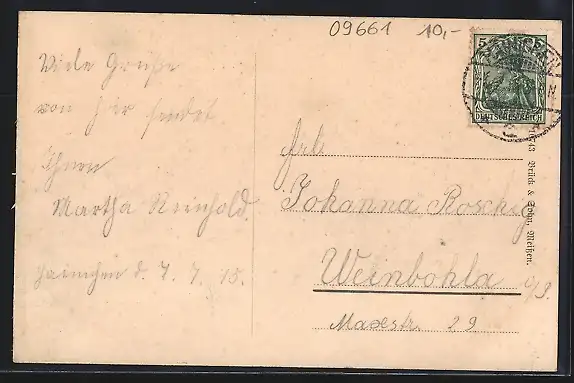 09661 10,-
Viele Grüße
von hier sendet
Ihnen
Martha Reinhold.
Hainichen d. 7. 7. 15.
5 5
DEUTSCHES REICH
Frl.
Johanna
Weinböhla
Maxstr. 29
Brück & Sohn, Meißen.